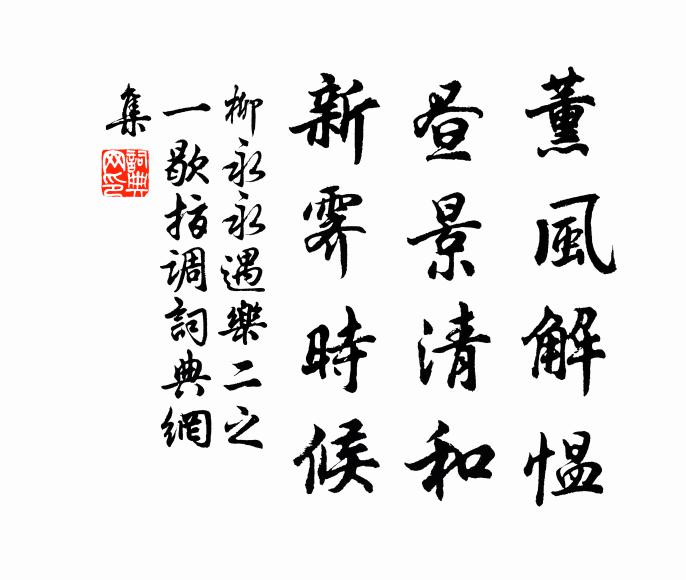 薰風解慍
昼景清和
新霽時候
柳永永遇樂二之
一歇指調詞典網
集
詞典
网印